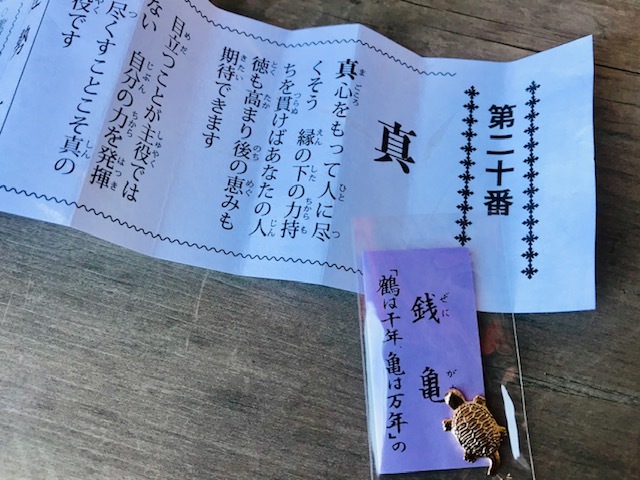 第二十番
真
真心をもって人に尽
くそう　縁の下の力持
ちを貫けばあなたの人
徳も高まり後の恵みも
期待できます
目立つことが主役では
ない　自分の力を発揮
尽くすことこそ真の
役です
銭亀
「鶴は千年、亀は万年」の